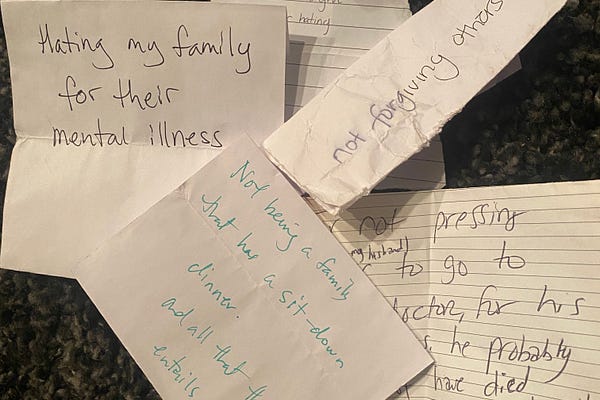 Hating my family
for their
mental illness
hating
not forgiving others
Not being a family
that has a sit-down
dinner.
and all that
entails
not pressing
(my husband)
to go to
doctor, for his
he probably
have died